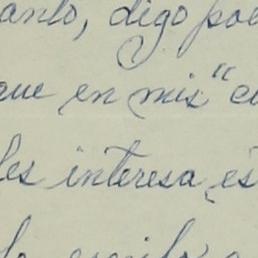 anto, digo poe
que en mis "cu
les interesa, es